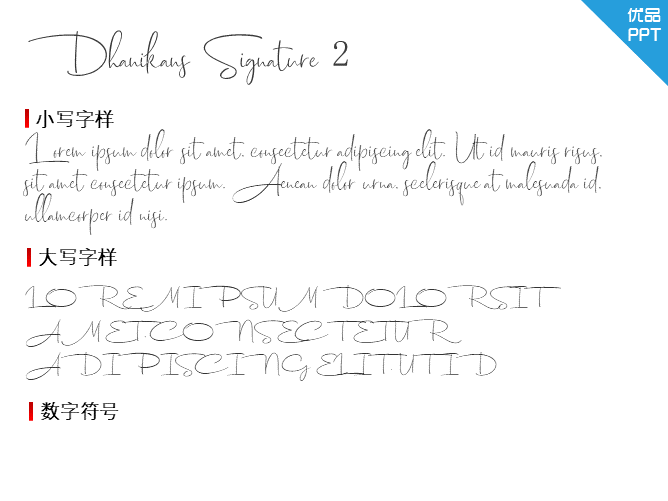 优品
PPT
Dhanikans Signature 2
小写字样
Lorem ipsum dolor sit amet, consectetur adipiscing elit. Ut id mauris risus,
sit amet consectetur ipsum. Aenean dolor urna, scelerisque at malesuada id,
ullamcorper id nisi.
大写字样
LOREM IPSUM DOLOR SIT
AMET, CONSECTETUR
ADIPISCING ELIT. UT ID
数字符号